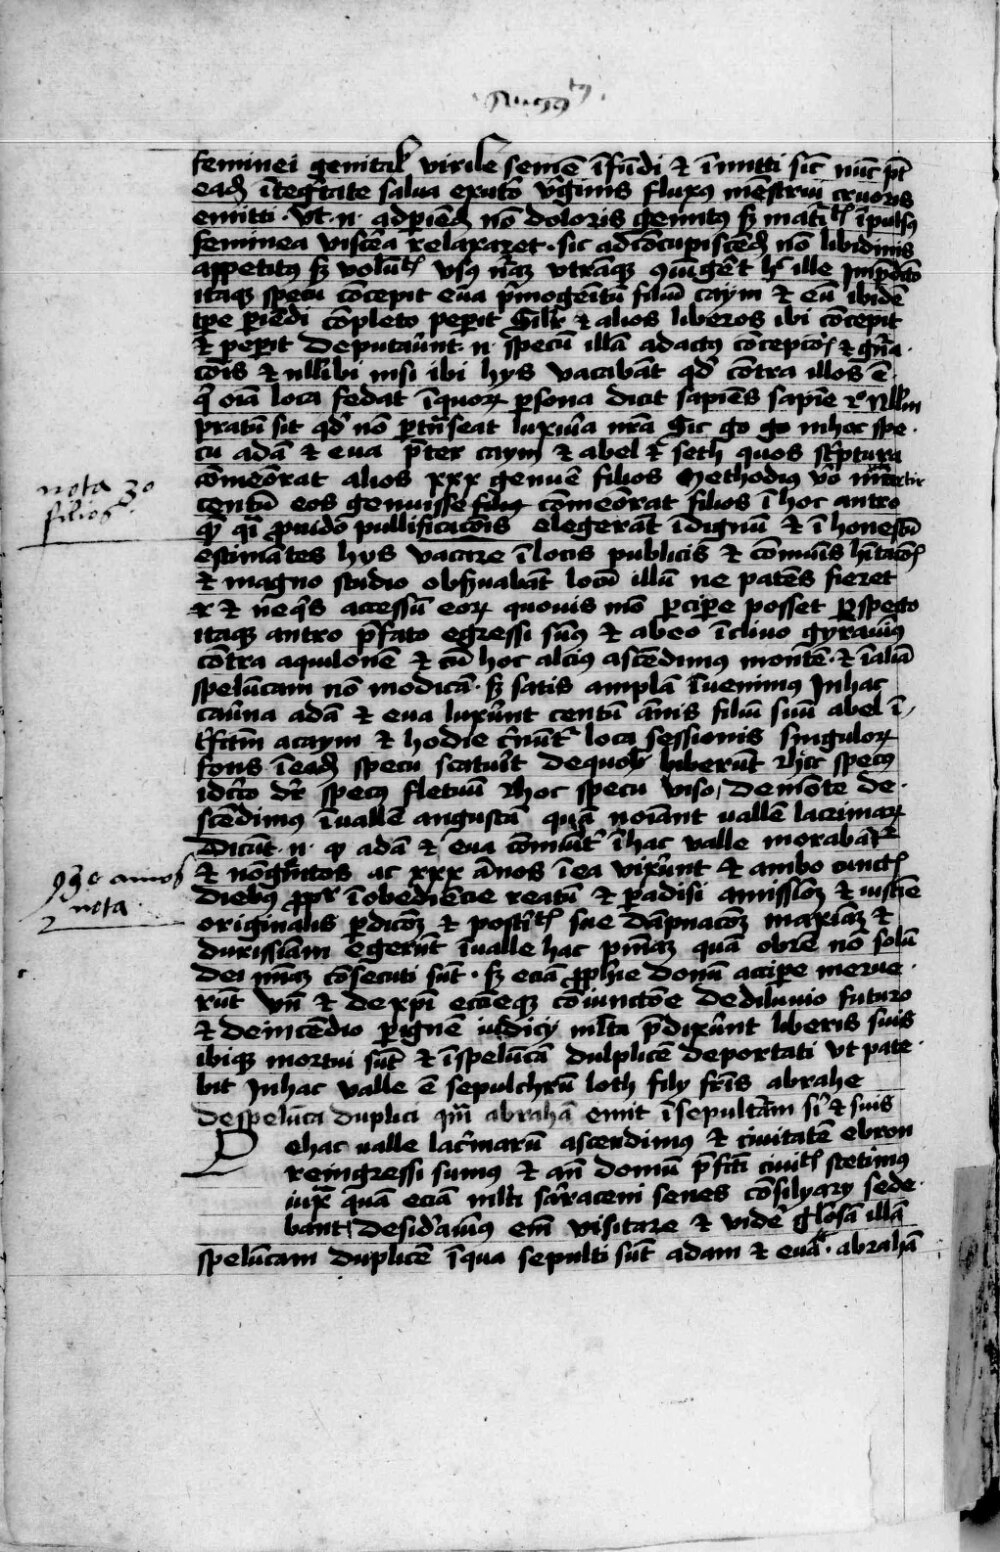 feminei genital virile semē īfūdi & īmitti sic nūc pt̄
eadē ītegͥtate salua exutō vͥginis fluxꝯ mēstrui cruoris
emitti · vt · n · adpiēdē nō doloris gemitꝯ sꝫ māt īpulsꝯ
feminea viscēa relaxaret · sic adcōcupiscēdē nō libidinis
appetitꝯ sꝫ volūt vsꝯ vtrāqꝫ ille
itaqꝫ specu cōcepit eua pͥmogeītū filiū caym & eū ibidē
tpe completo pepit & alios liberos ibi cōcepit
& pepit deputauūt · n · specū illā adactꝯ cōcepcōꝭ & gn̄a
cōis & nllibi nisi ibi hys vacabāt qd̄ cōtra illos ē
qͥ oīa loca fedat īquoꝝ psona dicit sapiēs sapīe 2º Nllm
pratū sit qd̄ nō ptnseat luxuria nrā Sic go inhoc spe
cu adā & eua p̄ter caym & abel & seth quos scͥptura
cōmeōrat alios xxx genuē filios Methodiꝯ vͦo martir
centū eos genuisse cōmeōrat filios ī hoc antro
elegerāt īdignū & ī honestū
estimātes hys vacare ī locis publicis & cōmuīs
& magno studio obsuabāt locū illū ne patēs fieret
& neqͥs accessū eoꝝ quouis mō pcipe posset Pspecto
itaqꝫ antro p̄fato egressi sumꝯ & abeo īcliuo gyrauimꝯ
cōtra aquilonē & cū hoc alciꝯ ascēdimꝯ montē · & ī aliā
spelūcam nō modicā · sꝫ satis amplā īuenimꝯ Inhac
cauna adā & eua luxūnt centū ānis filiū suū abel ī
tfctm̄ acaym & hodie cnūt loca sessionis singuloꝝ
fons īeadē specu scatuīt dequo biberūt & hic specꝯ
idcͥco dr̄ specꝯ fletuū & hoc specu viso, demōte de
scēdimꝯ īuallē angustā quā noīant uallē lacrimaꝝ
Dicūt · n · ꝙ adā & eua cōmuīt īhac valle morabāt
& nōgētos ac xxx ānos īea vixūnt & ambo cunctꝭ
diebꝯ ꝓpͥ īobediēcie reatū & padisi amissiōꝫ & iusticie
originalis pdicōꝫ & postītꝭ sue dāpnacōꝫ maxiāꝫ &
durissiām egerūt īualle hac pniāꝫ quā obrē nō solū
dei cōsecuti sūt · sꝫ eciā ꝓphīe donū accipe merue
rūt vn̄ & dexpī ecciēqꝫ cōiunctōe dediluuio futuro
& deincēdio pignē iudicij mlta p̄dixūnt liberis suis
ibiqꝫ mortui sūt & īspelūcā dulplicē deportati vt pate
bit Inhac valle ē sepulchrū loth filij frīs abrahe
despelūca duplici quā abrahā emit īsepultām sī & suis
D ehac ualle lacͥmarū ascendimꝯ & ciuitatē ebron
reingressi sumus & an̄ domū p̄fcti ciuitꝭ stetimꝯ
iuxͣ quā eciā mlti sarraceni senes cōsilyary sede
bant, desidͣauimꝯ em̄ visitare & vidē glōsā illā
spelūcam duplicē īqua sepulti sūt adam & eua · abrahā
nota 30
filios
930 annos
nota